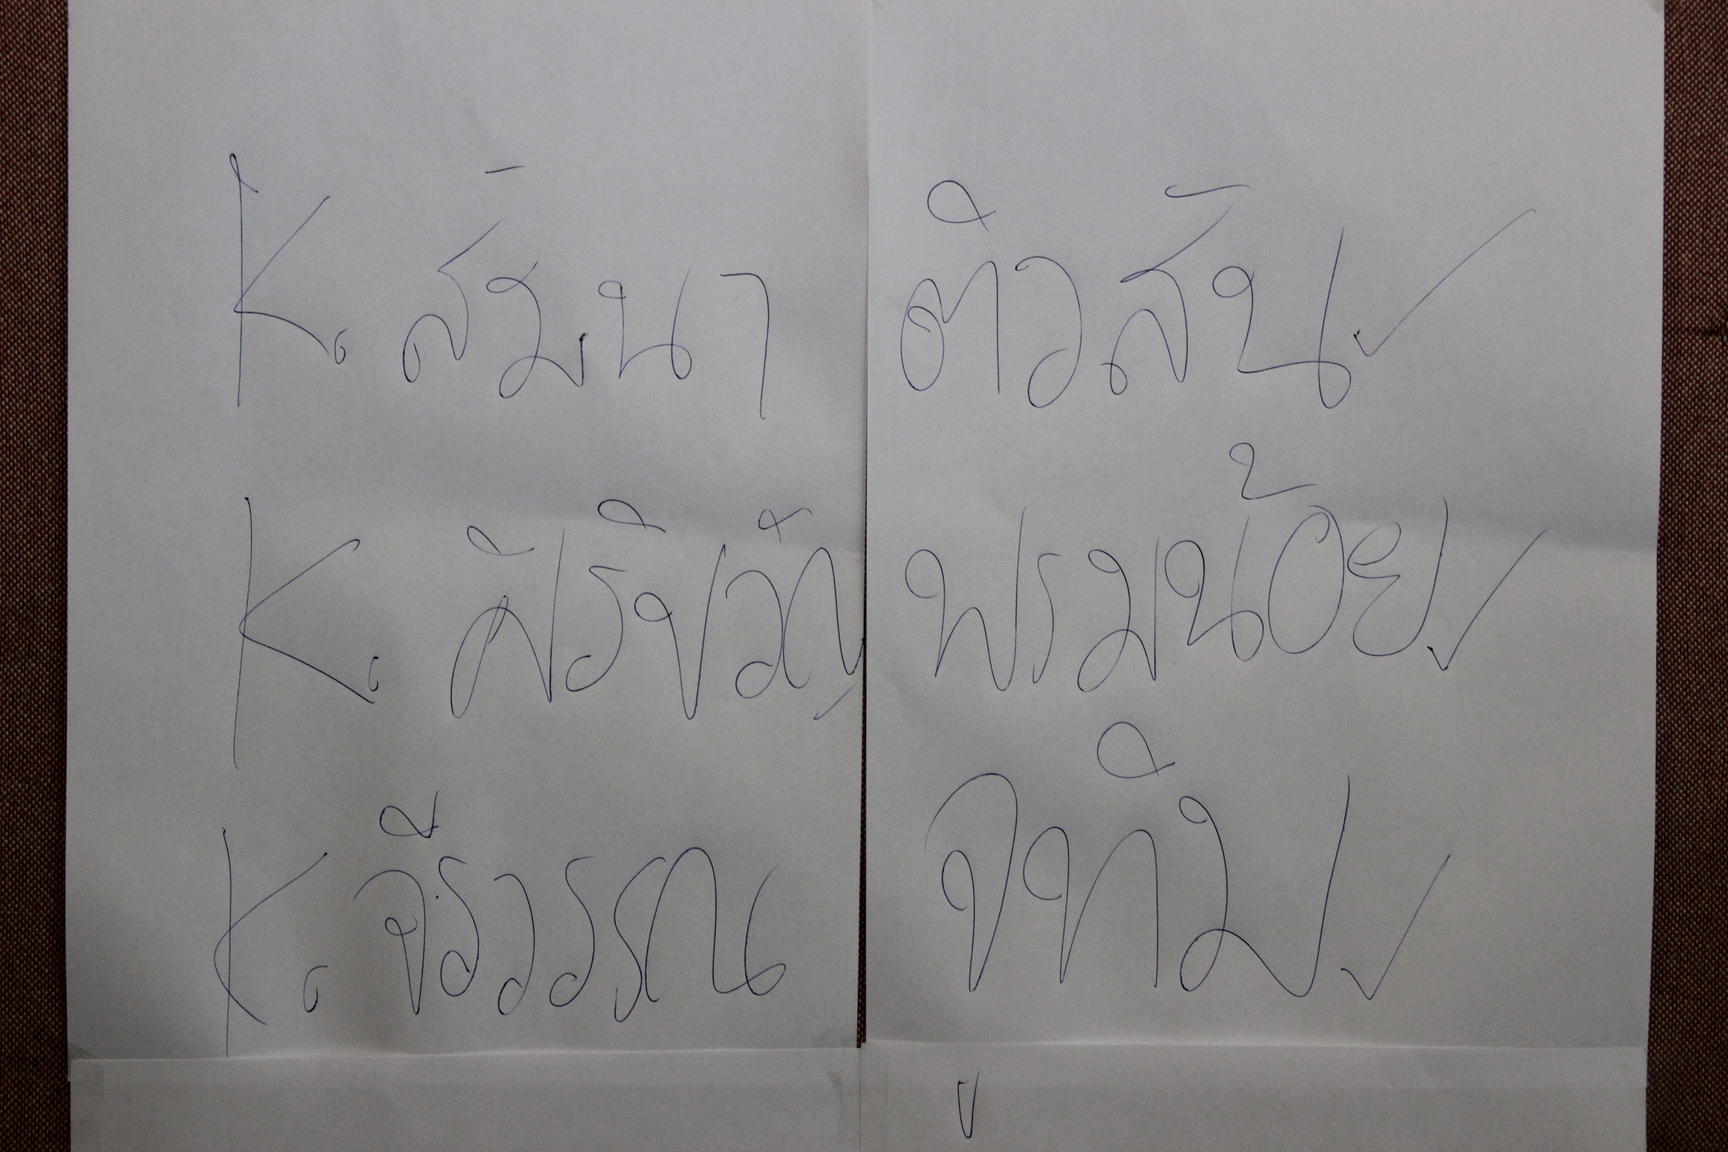 K. สัมนา ติวสัน
K. ศิริขวัญ พรมน้อย
K. จีรวรรณ จูทิม